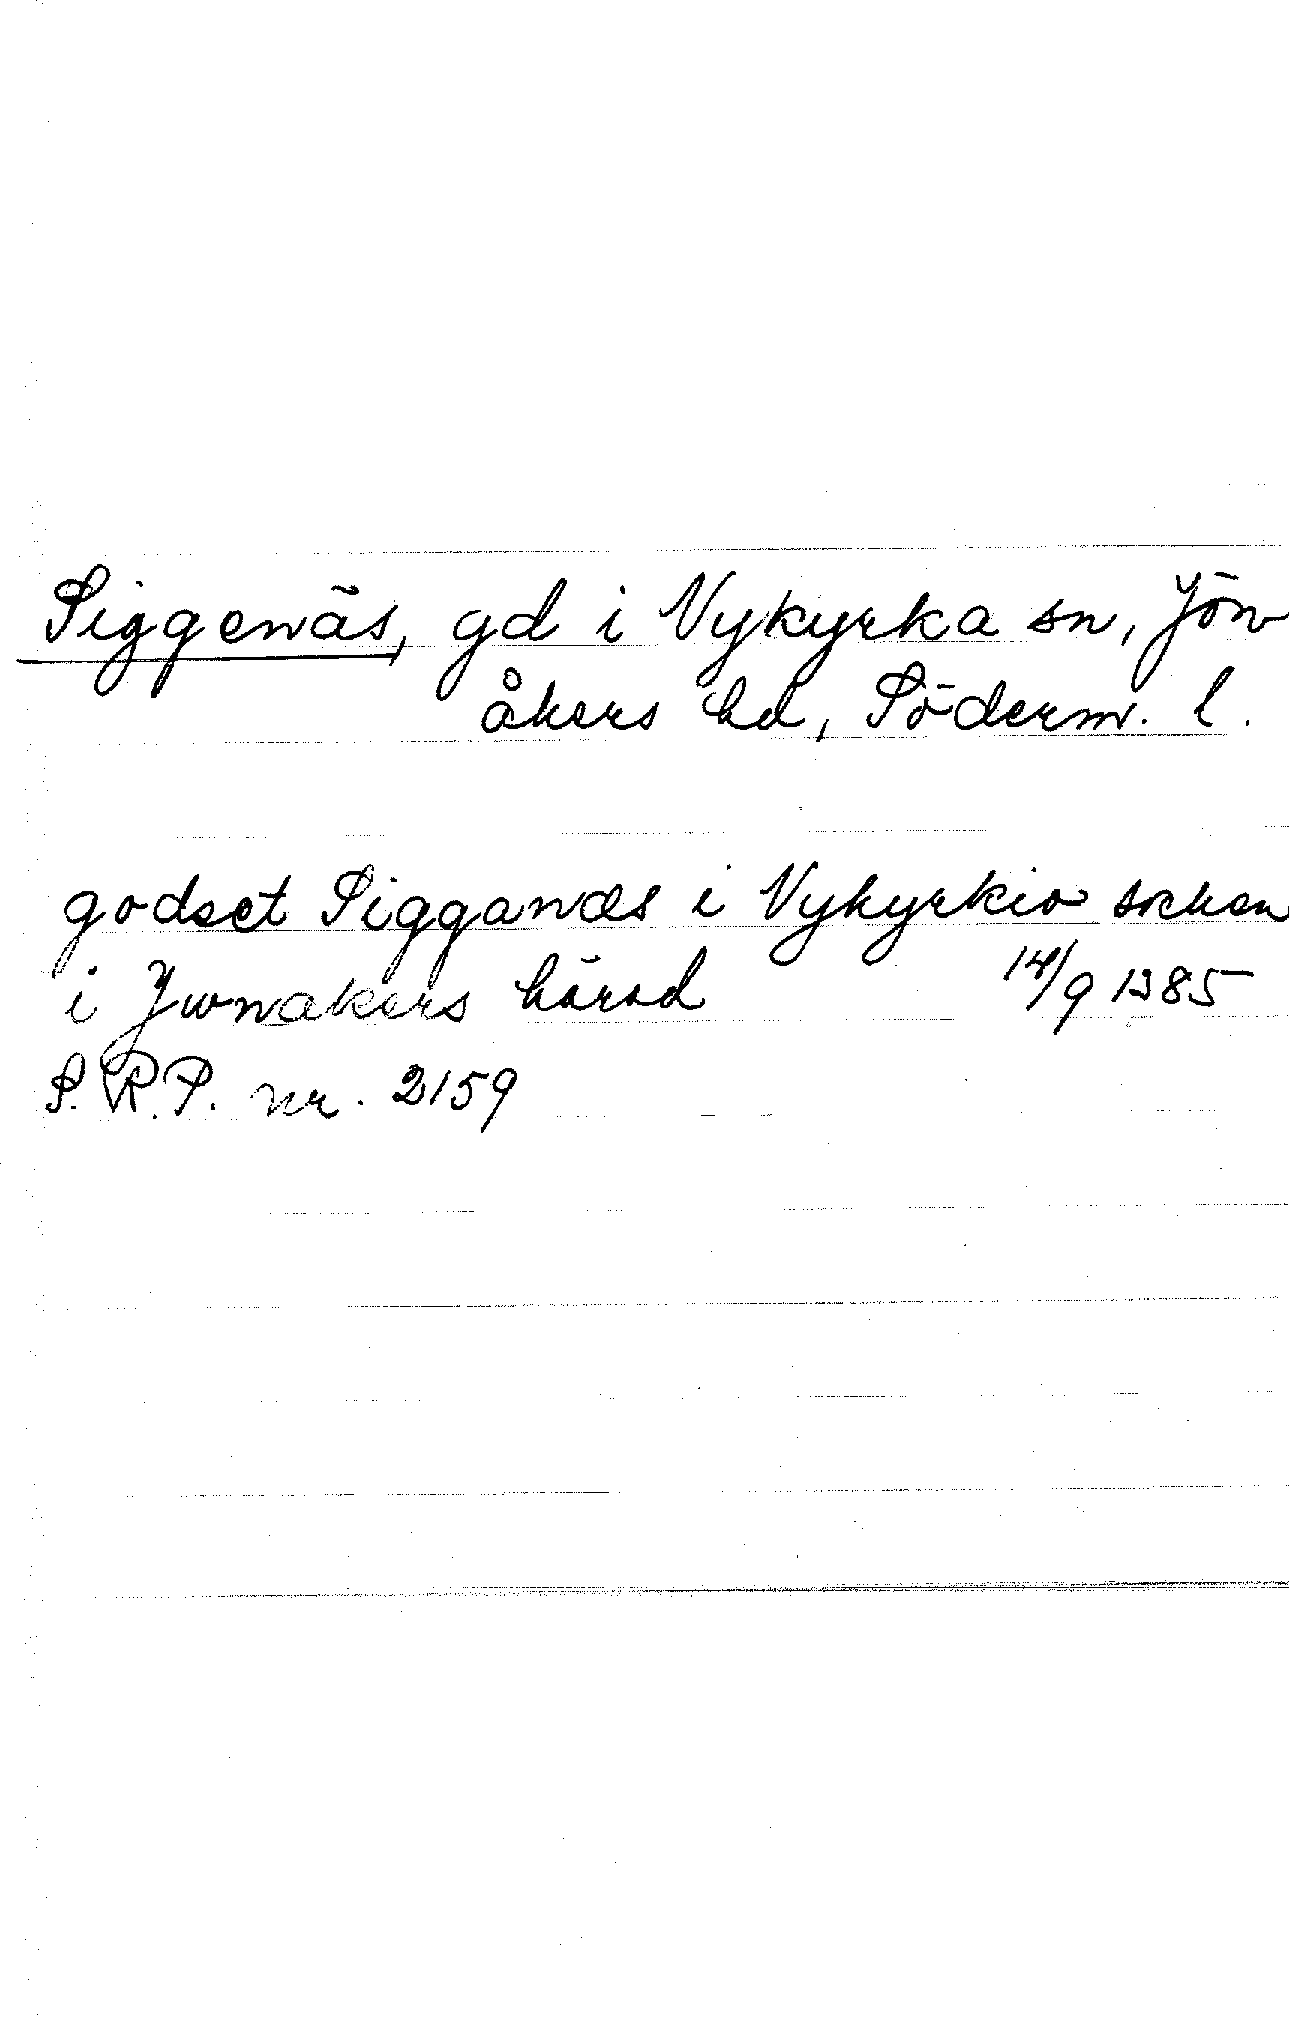 Siggenäs, gd i Nykyrka sn, Jön
åkers hd, Söderm. l.
godset Sigganæs i Nykyrkio soken
i Jwnakers härad 14/9 1385
S.R.P. nr. 2159